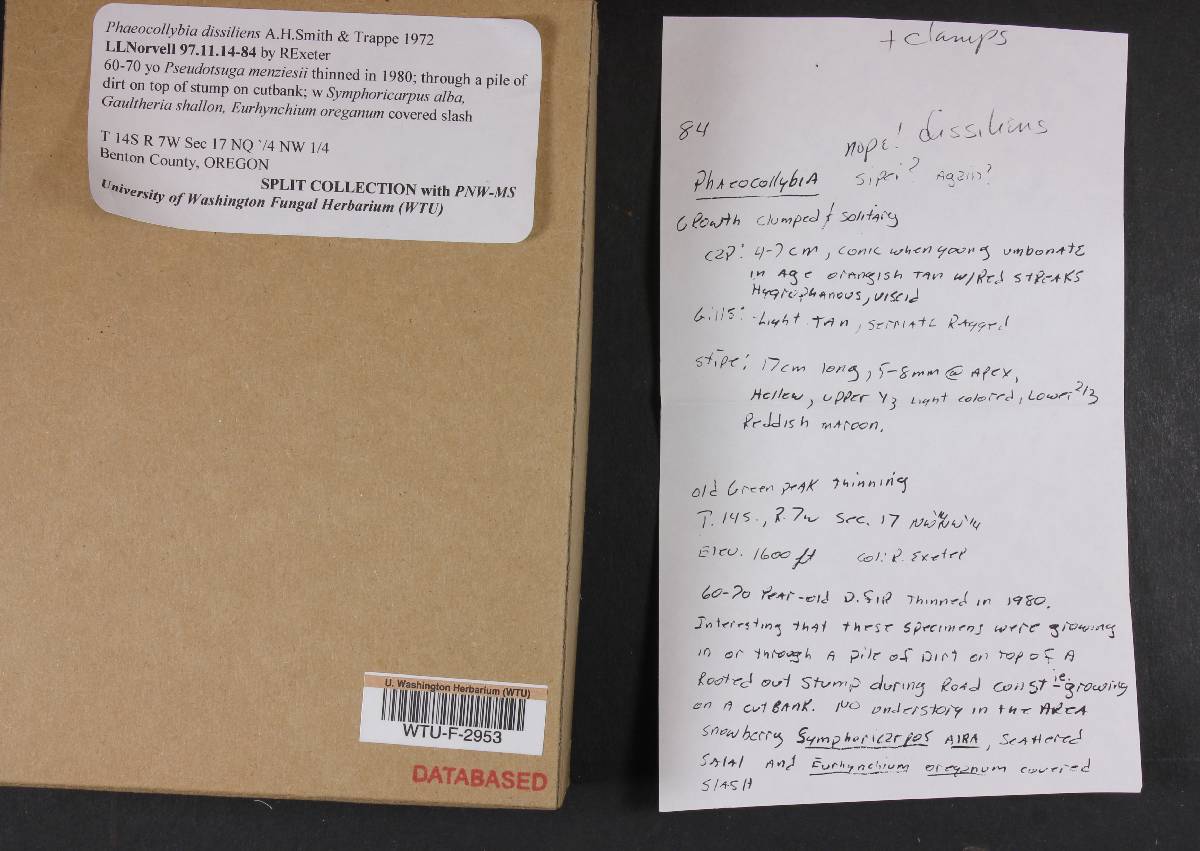 Phaeocollybia dissiliens A.H.Smith & Trappe 1972
LLNorvell 97.11.14-84 by RExeter
60-70 yo Pseudotsuga menziesii thinned in 1980; through a pile of
dirt on top of stump on cutbank; w Symphoricarpus alba,
Gaultheria shallon, Eurhynchium oreganum covered slash
T 14S R 7W Sec 17 NQ 1/4 NW 1/4
Benton County, OREGON
SPLIT COLLECTION with PNW-MS
University of Washington Fungal Herbarium (WTU)
U. Washington Herbarium (WTU)
WTU-F-2953
DATABASED
+ clamps
84
nope! dissiliens
Phaeocollybia sipei? Again?
Growth clumped & solitary
cap: 4-7 cm, conic when young umbonate
in Age orangish tan w/Red streaks
Hygrophanous, viscid
Gills: Light tan, serriate Ragged
stipe: 17cm long, 5-8mm @ Apex,
Hollow, upper 1/3 Light colored, Lower 2/3
Reddish maroon.
old Green peak thinning
T. 14S., R. 7w Sec. 17 NW1/4NW1/4
Elev. 1600 ft Col: R. Exeter
60-70 Year-old D.fir Thinned in 1980.
Interesting that these specimens were growing
in or through A pile of Dirt on top of A
Rooted out stump during Road const ie. growing
on A cutBANK. No understory in the AREA
snowberry Symphoricarpos AlBA, Scattered
SAlAl And Eurhynchium oregonum covered
SlASH